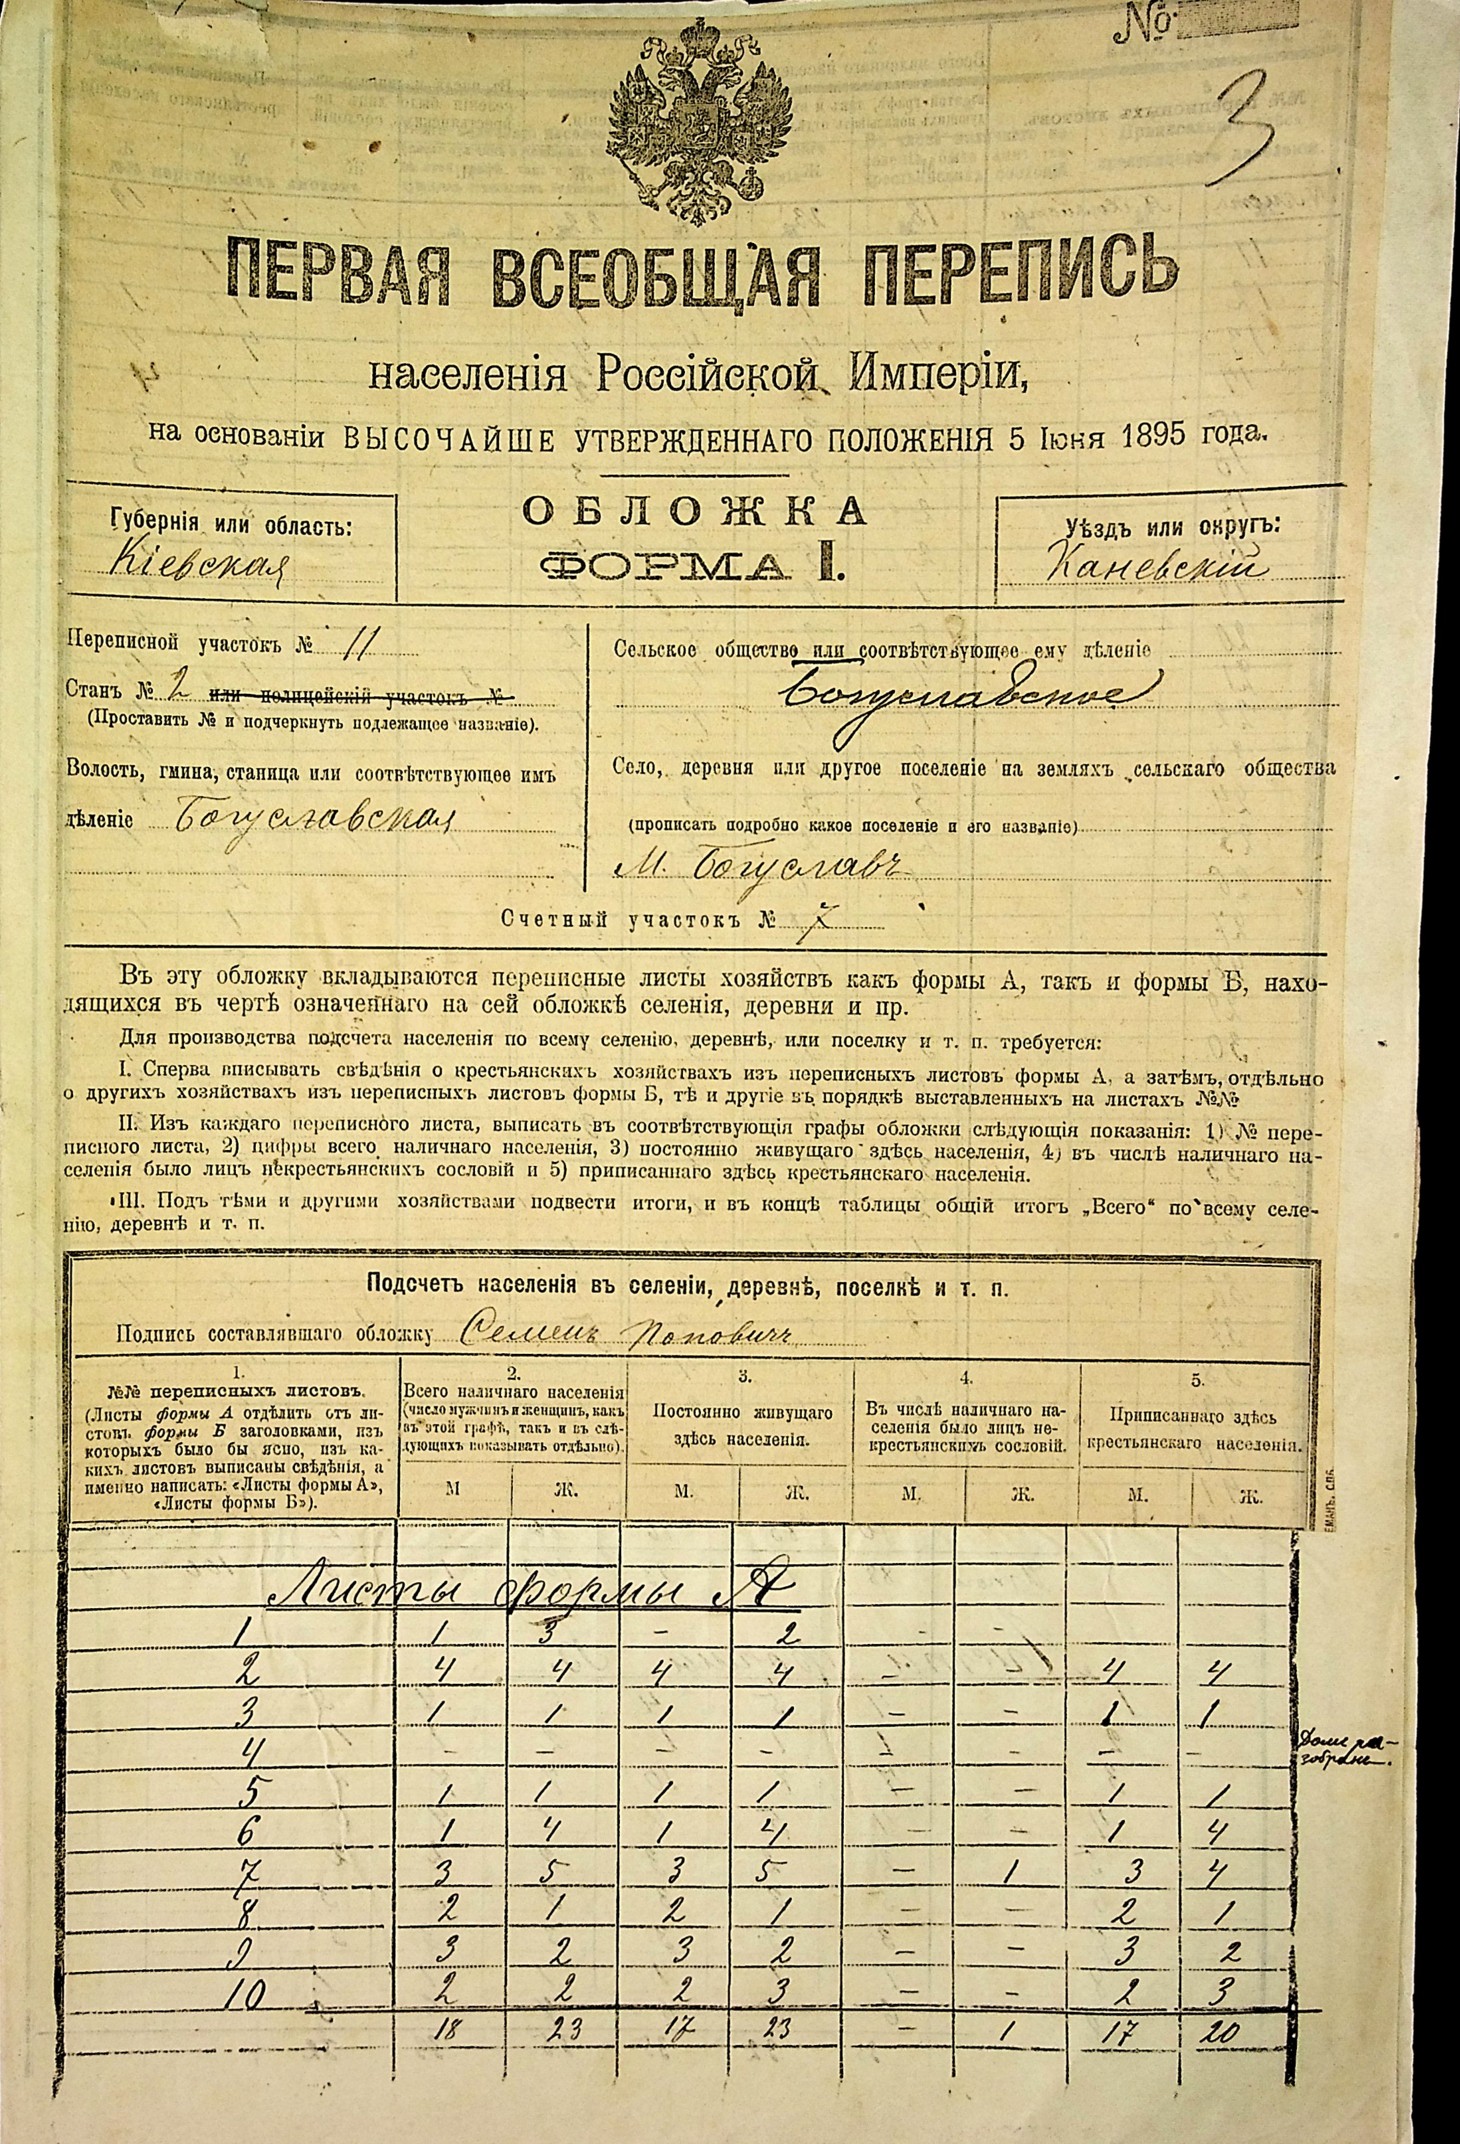 №
3
ПЕРВАЯ ВСЕОБЩАЯ ПЕРЕПИСЬ
населенія Россійской Имперіи,
на основаніи ВЫСОЧАЙШЕ УТВЕРЖДЕННАГО ПОЛОЖЕНІЯ 5 Іюня 1895 года.
ОБЛОЖКА
ФОРМА I.
Губернія или область:
Кіевская
Уѣздъ или округъ:
Каневскій
Переписной участокъ № 11
Станъ № 2 или полицейскій участокъ №
(Проставить № и подчеркнуть подлежащее названіе).
Волость, гмина, станица или соотвѣтствующее имъ
дѣленіе Богуславская
Сельское общество или соотвѣтствующее ему дѣленіе
Богуславское
Село, деревня или другое поселеніе на земляхъ сельскаго общества
(прописать подробно какое поселеніе и его названіе)
М. Богуславъ
Счетный участокъ № 7
Въ эту обложку вкладываются переписные листы хозяйствъ какъ формы А, такъ и формы Б, нахо-
дящихся въ чертѣ означеннаго на сей обложкѣ селенія, деревни и пр.
Для производства подсчета населенія по всему селенію, деревнѣ, или поселку и т. п. требуется:
I. Сперва вписывать свѣдѣнія о крестьянскихъ хозяйствахъ изъ переписныхъ листовъ формы А, а затѣмъ, отдѣльно
о другихъ хозяйствахъ изъ переписныхъ листовъ формы Б, тѣ и другіе въ порядкѣ выставленныхъ на листахъ №№
II. Изъ каждаго переписного листа, выписать въ соотвѣтствующія графы обложки слѣдующія показанія: 1) № пере-
писного листа, 2) цифры всего наличнаго населенія, 3) постоянно живущаго здѣсь населенія, 4) въ числѣ наличнаго на-
селенія было лицъ некрестьянскихъ сословій и 5) приписаннаго здѣсь крестьянскаго населенія.
III. Подъ тѣми и другими хозяйствами подвести итоги, и въ концѣ таблицы общій итогъ „Всего“ по всему селе-
нію, деревнѣ и т. п.
Подсчетъ населенія въ селеніи, деревнѣ, поселкѣ и т. п.
Подпись составлявшаго обложку Семенъ Поповичъ
1.
№№ переписныхъ листовъ.
(Листы формы А отдѣлить отъ ли-
стовъ формы Б заголовками, изъ
которыхъ было бы ясно, изъ ка-
кихъ листовъ выписаны свѣдѣнія, а
именно написать: «Листы формы А»,
«Листы формы Б»).
2.
Всего наличнаго населенія
(число мужчинъ и женщинъ, какъ
въ этой графѣ, такъ и въ слѣ-
дующихъ показывать отдѣльно).
М Ж.
3.
Постоянно живущаго
здѣсь населенія.
М. Ж.
4.
Въ числѣ наличнаго на-
селенія было лицъ не-
крестьянскихъ сословій.
М. Ж.
5.
Приписаннаго здѣсь
крестьянскаго населенія.
М. Ж.
Листы формы А
1 1 3 – 2 – –
2 4 4 4 4 – – 4 4
3 1 1 1 1 – – 1 1
4 – – – – – – – –
Доме ра-
зобране.
5 1 1 1 1 – – 1 1
6 1 4 1 4 – – 1 4
7 3 5 3 5 – 1 3 4
8 2 1 2 1 – – 2 1
9 3 2 3 2 – – 3 2
10 2 2 2 3 – – 2 3
18 23 17 23 – 1 17 20